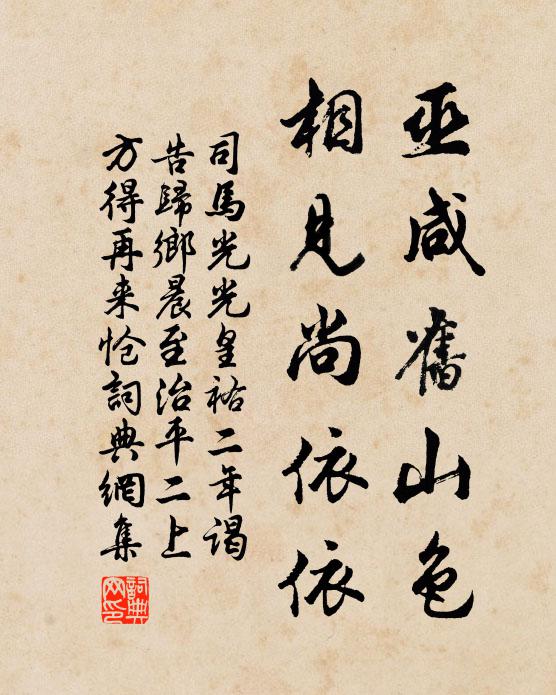 巫咸舊山色
相見尚依依
司馬光光皇祐二年謁
告歸鄉晨至治平二上
方得再来怆詞典網集
詞典网印